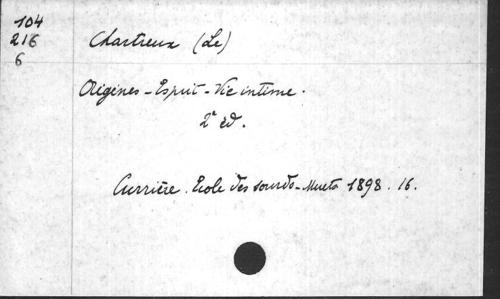 104
216
6
Chartreux (Le)
Origines - Esprit - Vie intime.
2e ed.
Currière. Ecole des sourds-Muets 1898. 16.